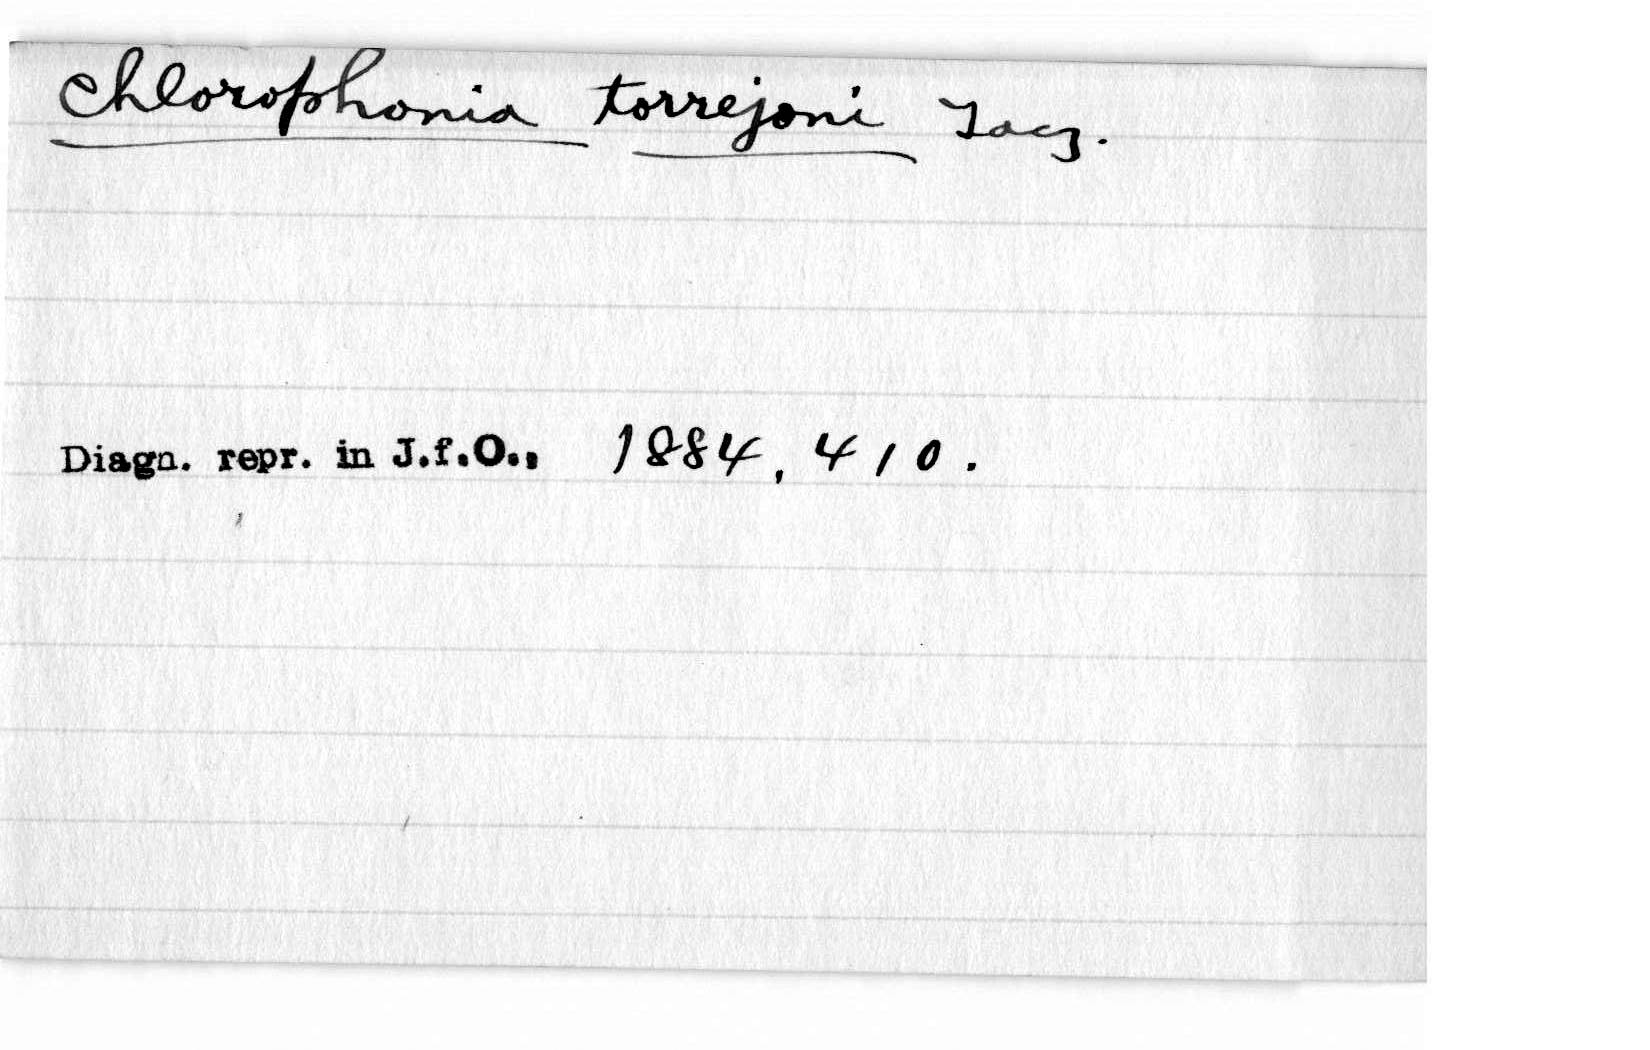 Chlorophonia torrejoni Tacz.
Diagn. repr. in J.f.O., 1884, 410.